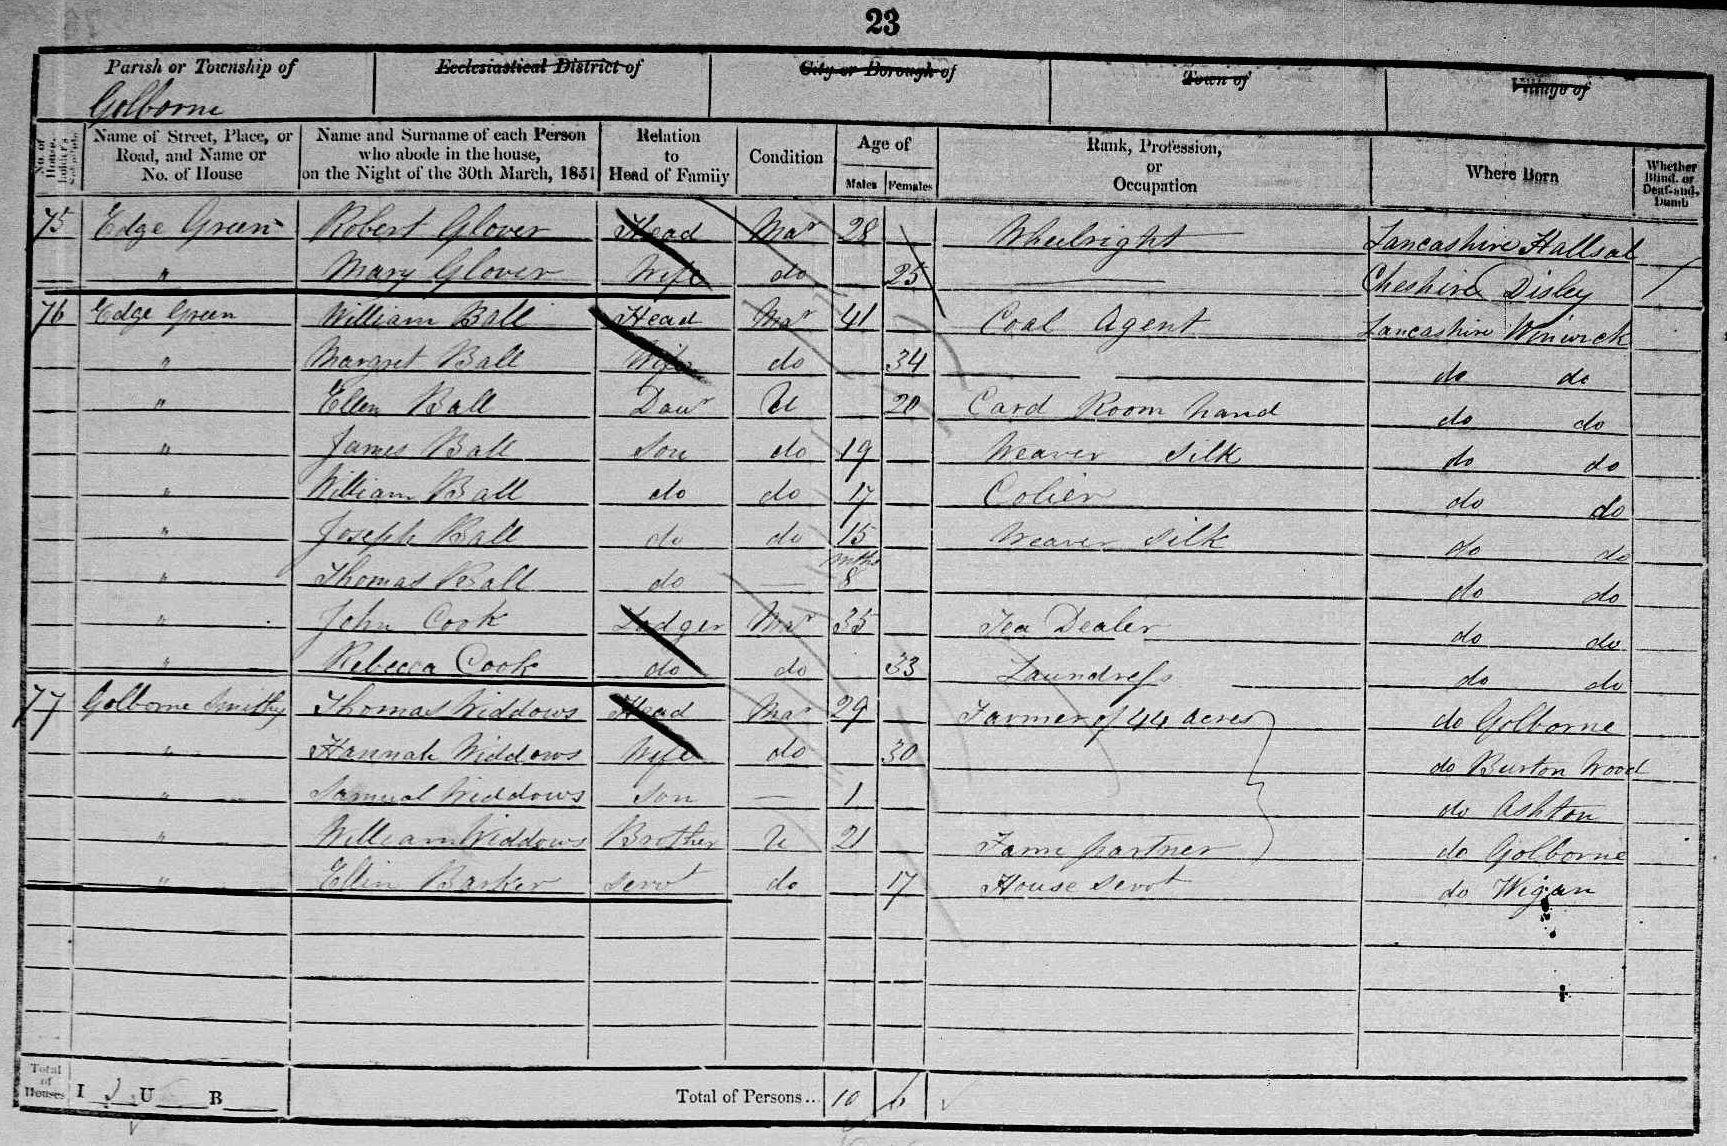 23
Parish or Township of Ecclesiastical District of City or Borough of Town of Village of
Golborne
No. of House-holder's Schedule Name of Street, Place, or Road, and Name or No. of House Name and Surname of each Person who abode in the house, on the Night of the 30th March, 1851 Relation to Head of Family Condition Age of Males Females Rank, Profession, or Occupation Where Born Whether Blind, or Deaf-and-Dumb
75 Edge Green Robert Glover Head Mar 28 Wheelright Lancashire Hallsal
" Mary Glover Wife do 25 Cheshire Disley
76 Edge Green William Ball Head Mar 41 Coal Agent Lancashire Winwick
" Margret Ball Wife do 34 do do
" Ellen Ball Daur U 20 Card Room hand do do
" James Ball Son do 19 Weaver Silk do do
" William Ball do do 17 Colier do do
" Joseph Ball do do 15 Weaver Silk do do
" Thomas Ball do — mths 8 do do
" John Cook Lodger Mar 35 Tea Dealer do do
" Rebecca Cook do do 33 Laundress do do
77 Golborne Smithy Thomas Widdows Head Mar 29 Farmer of 44 acres do Golborne
" Hannah Widdows Wife do 30 do Burton Wood
" Samual Widdows Son — 1 do Ashton
" William Widdows Brother U 21 Farm partner do Golborne
" Ellin Barker Servt do 17 House Servt do Wigan
Total of Houses I 3 U B Total of Persons.. 10 6